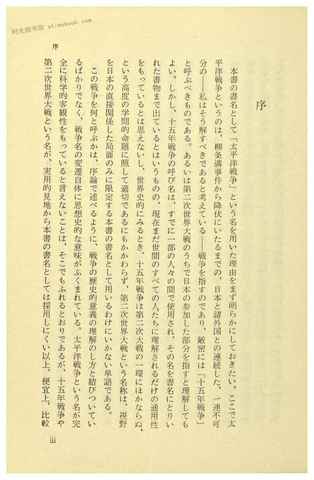 序
本書の書名として「太平洋戦争」という名を用いた理由をまず明らかにしておきたい。ここで太
平洋戦争というのは、柳条溝事件から降伏にいたるまでの、日本と諸外国との連続した、一連不可
分の――私はそう解すべきであると考えている――戦争を指すのであり、厳密には「十五年戦争」
と呼ぶべきものである。あるいは第二次世界大戦のうちで日本の参加した部分を指すと理解しても
よい。しかし、十五年戦争の呼び名は、すでに一部の人々の間で使用され、その名を書名にとりい
れた書物まで出ているものの、現在まだ世間のすべての人たちに理解されるだけの通用性
をもっているとは思えないし、世界史的にみるとき、十五年戦争は第二次大戦の一環にほかならぬ、
という高度の学問的命題に照して適切であるにもかかわらず、第二次世界大戦という名称は、視野
を日本の直接関係した局面のみに限定する本書の書名として用いるわけにいかない単語である。
この戦争を何と呼ぶかは、序論で述べるように、戦争の歴史的意義の理解のし方と結びついてい
るばかりでなく、戦争名の変遷自体に思想史的な意味がふくまれている。太平洋戦争という名が完
全に科学的客観性をもっていると言えないことは、そこでもふれるとおりであるが、十五年戦争や
第二次世界大戦という名が、実用的見地から本書の書名としては採用しにくい以上、便宜上、比較
序
iii